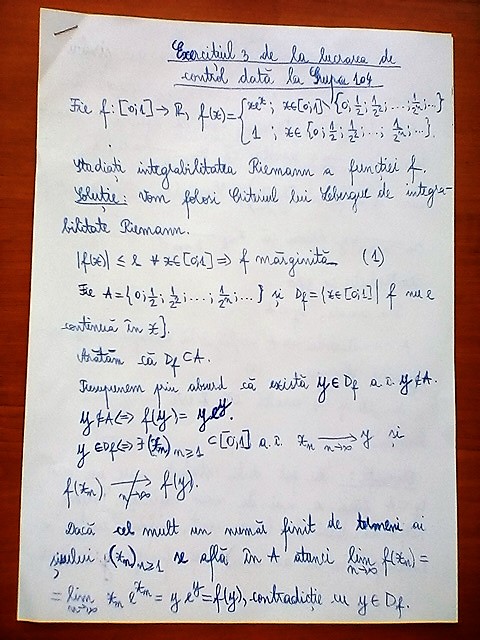 Exercițiul 3 de la lucrarea de
control dată la Grupa 104
Fie f: [0;1] → ℝ, f(x) = { xeˣ ; x∈[0;1] \ {0; 1/2; 1/2²; ...; 1/2ⁿ; ...}
1 ; x∈{0; 1/2; 1/2²; ...; 1/2ⁿ; ...}.
Studiați integrabilitatea Riemann a funcției f.
Soluție: Vom folosi Criteriul lui Lebesgue de integra-
bilitate Riemann.
|f(x)| ≤ e ∀ x∈[0;1] ⇒ f mărginită (1)
Fie A = {0; 1/2; 1/2²; ...; 1/2ⁿ; ...} și D_f = {x∈[0;1] | f nu e
continuă în x}.
Arătăm că D_f ⊂ A.
Presupunem prin absurd că există y∈D_f a.î. y∉A.
y∉A ⇔ f(y) = yeʸ.
y∈D_f ⇔ ∃ (xₙ)ₙ≥₁ ⊂ [0;1] a.î. xₙ →(n→∞) y și
f(xₙ) ↛(n→∞) f(y).
Dacă cel mult un număr finit de termeni ai
șirului (xₙ)ₙ≥₁ se află în A atunci lim(n→∞) f(xₙ) =
= lim(n→∞) xₙ e^(xₙ) = y eʸ = f(y), contradicție cu y∈D_f.